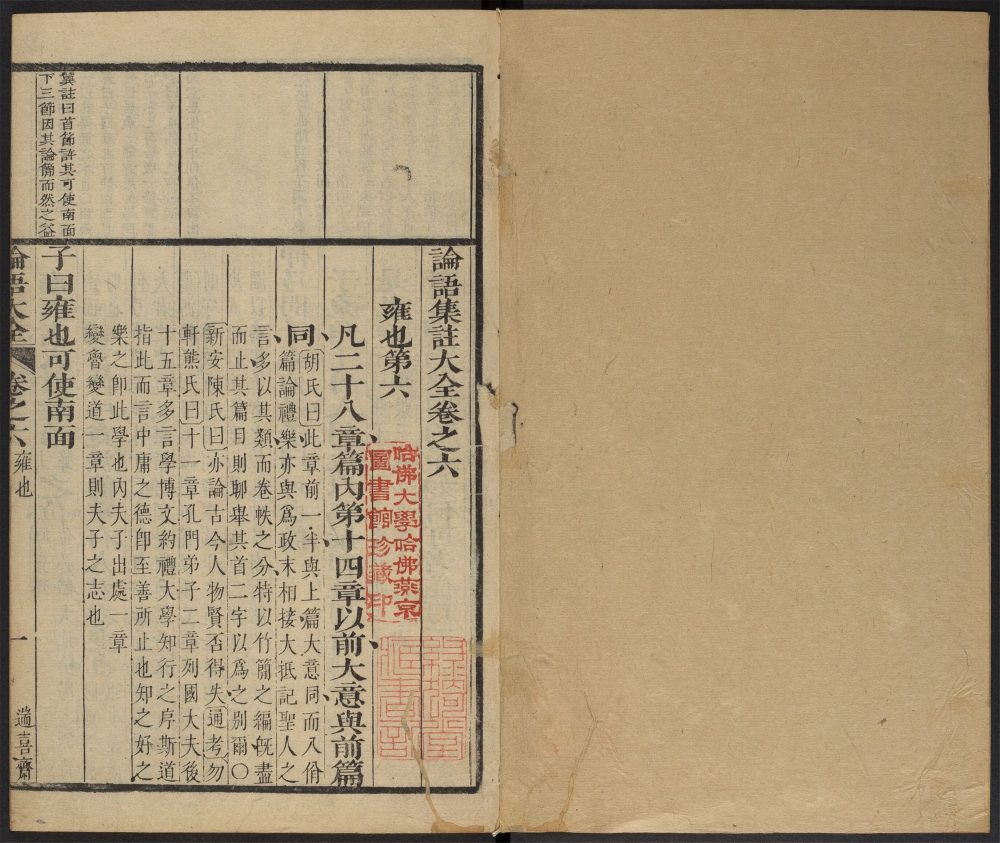 論語集註大全卷之六
雍也第六
凡二十八章篇內第十四章以前大意與前篇
同胡氏曰此章前一半與上篇大意同而八佾
篇論禮樂亦與爲政末相接大抵記聖人之
言多以其類而卷帙之分特以竹簡之編旣盡
而止其篇目則聊舉其首二字以爲之別爾〇
新安陳氏曰亦論古今人物賢否得失通考勿
軒熊氏曰十一章孔門弟子二章列國大夫後
十五章多言學博文約禮大學知行之序斯道
指此而言中庸之德卽至善所止也知之好之
樂之卽此學也內夫子出處一章
變魯變道一章則夫子之志也
子曰雍也可使南面
翼註曰首節許其可使南面
下三節因其論簡而然之益
論語大全
卷之六
雍也
一
遄喜齋
哈佛大學哈佛燕京
圖書館珍藏印